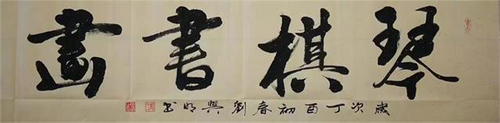 琴棋書畫
歲次丁酉初春劉興明書